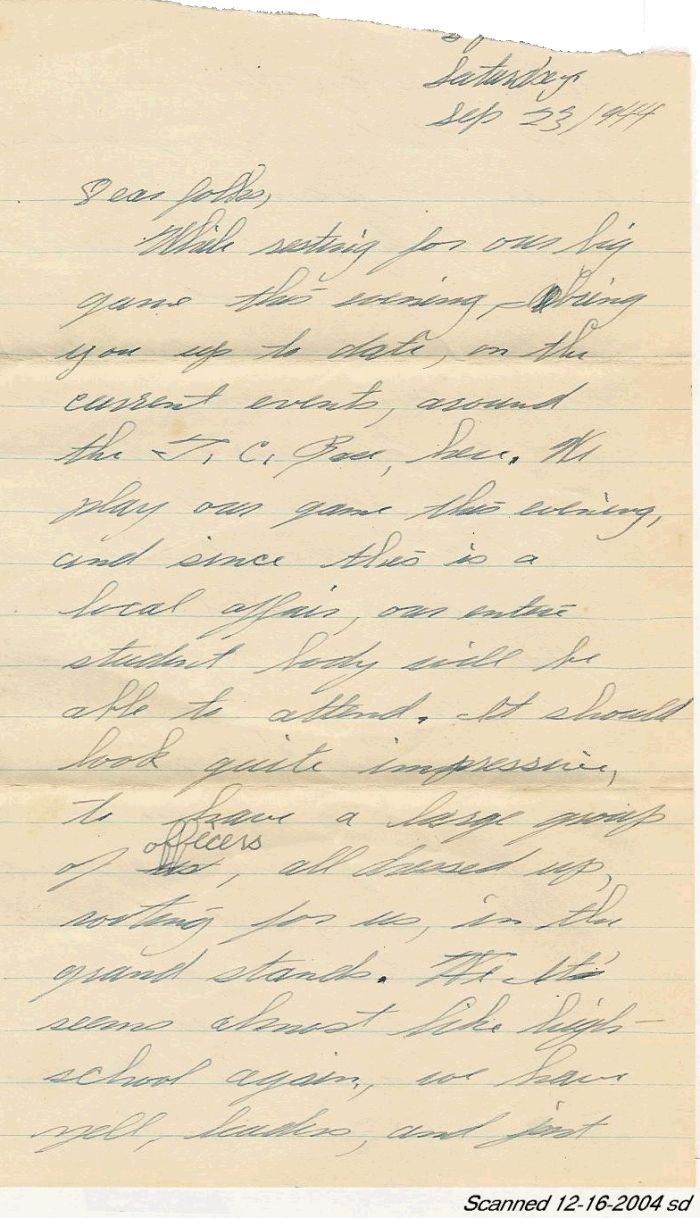 Saturday
Sep 23, 1944
Dear folks,
While resting for our big
game this evening, bring
you up to date, on the
current events, around
the T. C. here. We
play our game this evening,
and since this is a
local affair, our entire
student body will be
able to attend. It should
look quite impressive,
to have a large group
officers
of us, all dressed up,
rooting for us, in the
grand stands. We It's
seems almost like high-
school again, we have
yell, leaders, and just
Scanned 12-16-2004 sd